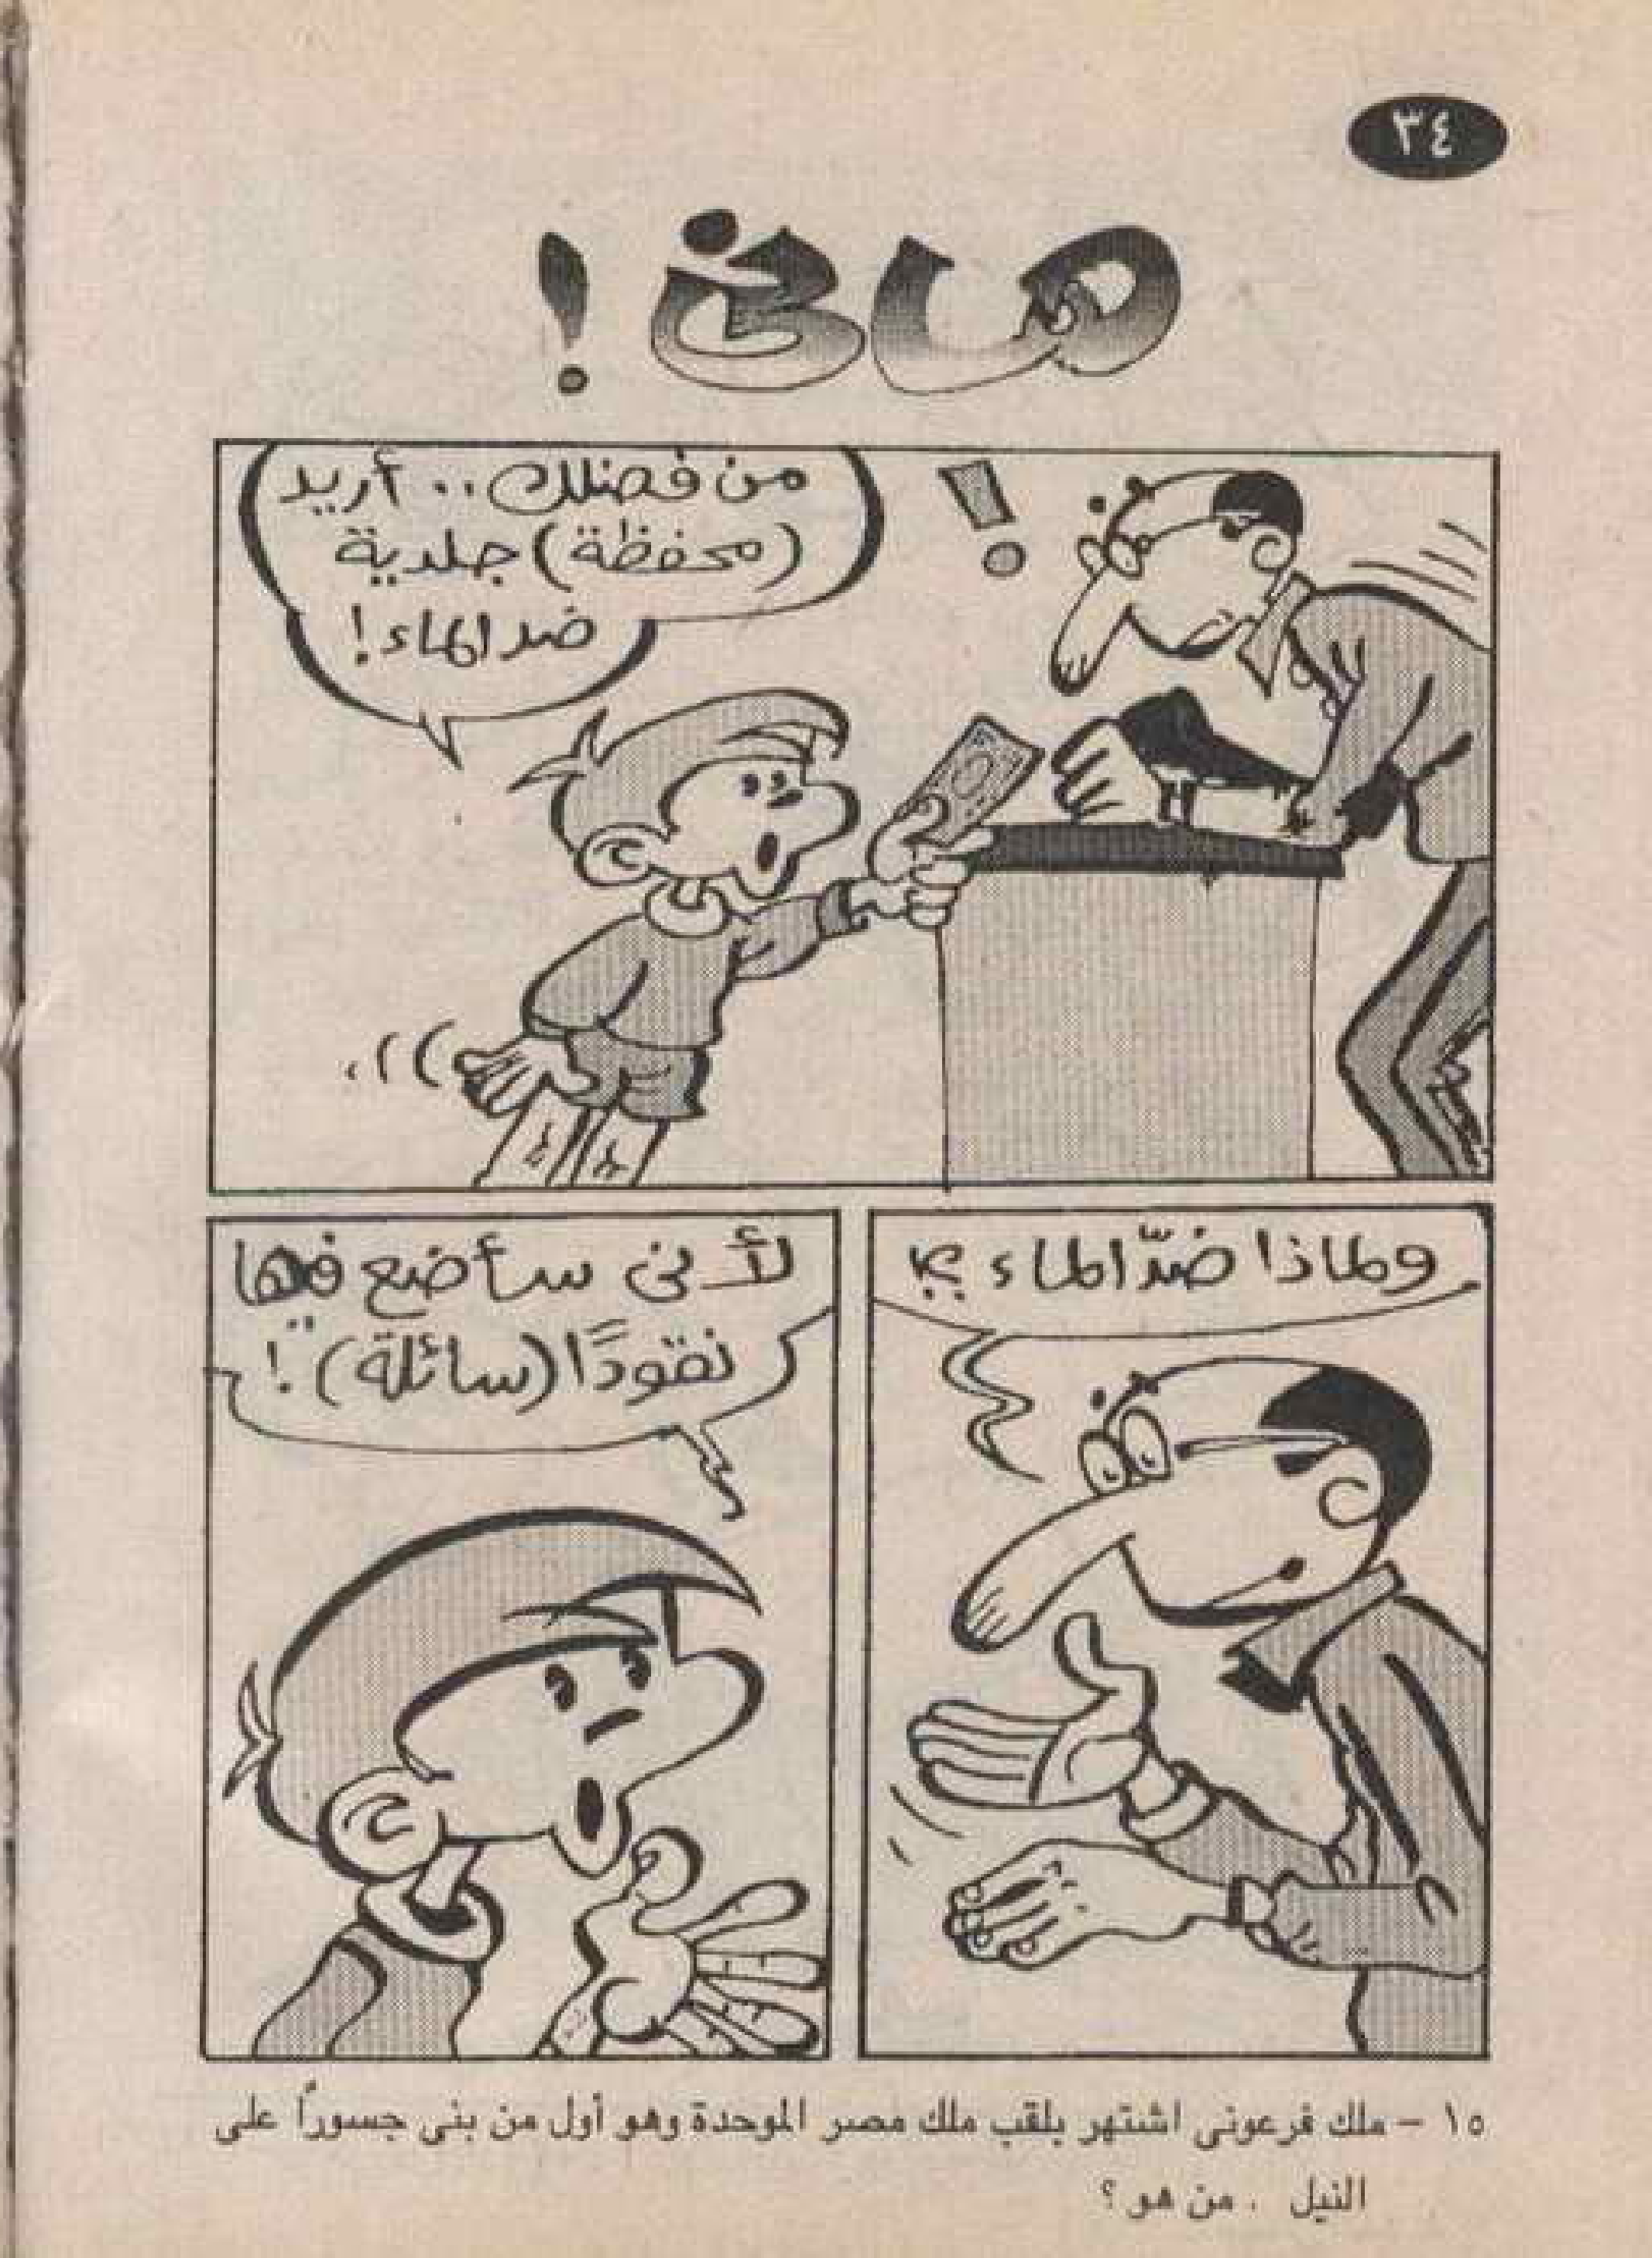 ٣٤
من فضلك .. أريد
(محفظة) جلدية
ضد الماء!
!
ولماذا ضدّ الماء ؟!
لأنى سأضع فيها
نقودًا (سائلة)!
١٥ - ملك فرعونى اشتهر بلقب ملك مصر الموحدة وهو أول من بنى جسوراً على
النيل . من هو ؟